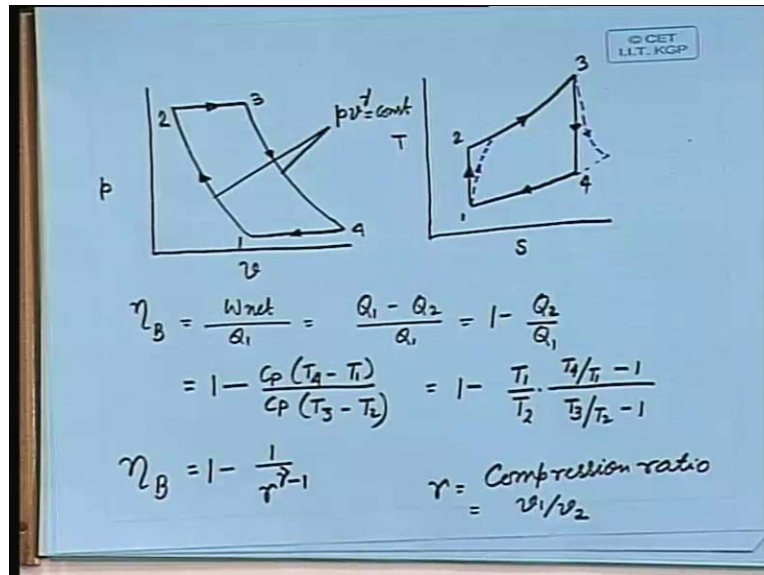 © CET
I.I.T. KGP
3
2 3 pvᵞ=const
T 2
p
4
4
1
1
v
S
η_B = Wnet/Q₁ = (Q₁ - Q₂)/Q₁ = 1 - Q₂/Q₁
= 1 - Cp (T₄ - T₁)/Cp (T₃ - T₂) = 1 - T₁/T₂ · (T₄/T₁ - 1)/(T₃/T₂ - 1)
η_B = 1 - 1/r^(γ-1) r = Compression ratio
= v₁/v₂